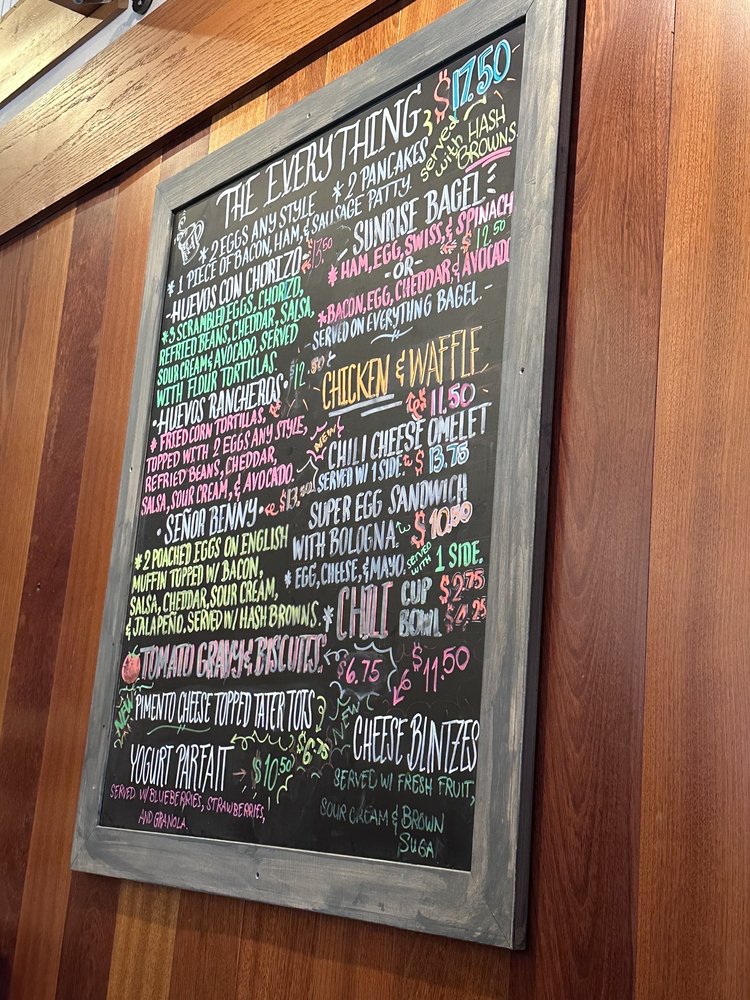 THE EVERYTHING $17.50
* 2 EGGS ANY STYLE * 2 PANCAKES
* 1 PIECE OF BACON, HAM, & SAUSAGE PATTY.
served with HASH BROWNS.
- HUEVOS CON CHORIZO - $13.50
* 3 SCRAMBLED EGGS, CHORIZO,
REFRIED BEANS, CHEDDAR, SALSA
SOUR CREAM & AVOCADO, SERVED
WITH FLOUR TORTILLAS.
• HUEVOS RANCHEROS • $12.50
* FRIED CORN TORTILLAS,
TOPPED WITH 2 EGGS ANY STYLE,
REFRIED BEANS, CHEDDAR,
SALSA, SOUR CREAM, & AVOCADO.
• SEÑOR BENNY • $13.
* 2 POACHED EGGS ON ENGLISH
MUFFIN TOPPED W/ BACON,
SALSA, CHEDDAR, SOUR CREAM,
& JALAPEÑO. SERVED W/ HASH BROWNS.
TOMATO GRAVY & BISCUITS. $6.75
NEW
PIMENTO CHEESE TOPPED TATER TOTS
$6.75
YOGURT PARFAIT → $10.50
SERVED W/ BLUEBERRIES, STRAWBERRIES,
AND GRANOLA.
- SUNRISE BAGEL -
* HAM, EGG, SWISS, & SPINACH
- OR - $12.50
* BACON, EGG, CHEDDAR, & AVOCADO
- SERVED ON EVERYTHING BAGEL. -
CHICKEN & WAFFLE
$11.50
NEW
CHILI CHEESE OMELET
SERVED W/ 1 SIDE. $13.75
SUPER EGG SANDWICH
WITH BOLOGNA. $10.50
* EGG, CHEESE, & MAYO. SERVED WITH 1 SIDE.
* CHILI CUP $2.75
BOWL $4.25
$11.50
NEW
CHEESE BLINTZES
SERVED W/ FRESH FRUIT,
SOUR CREAM & BROWN
SUGA